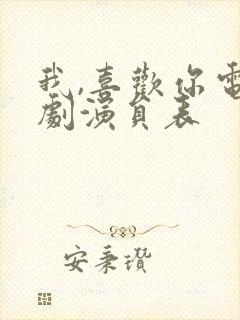 我,喜歡你電
劇演員表
安秉瓚